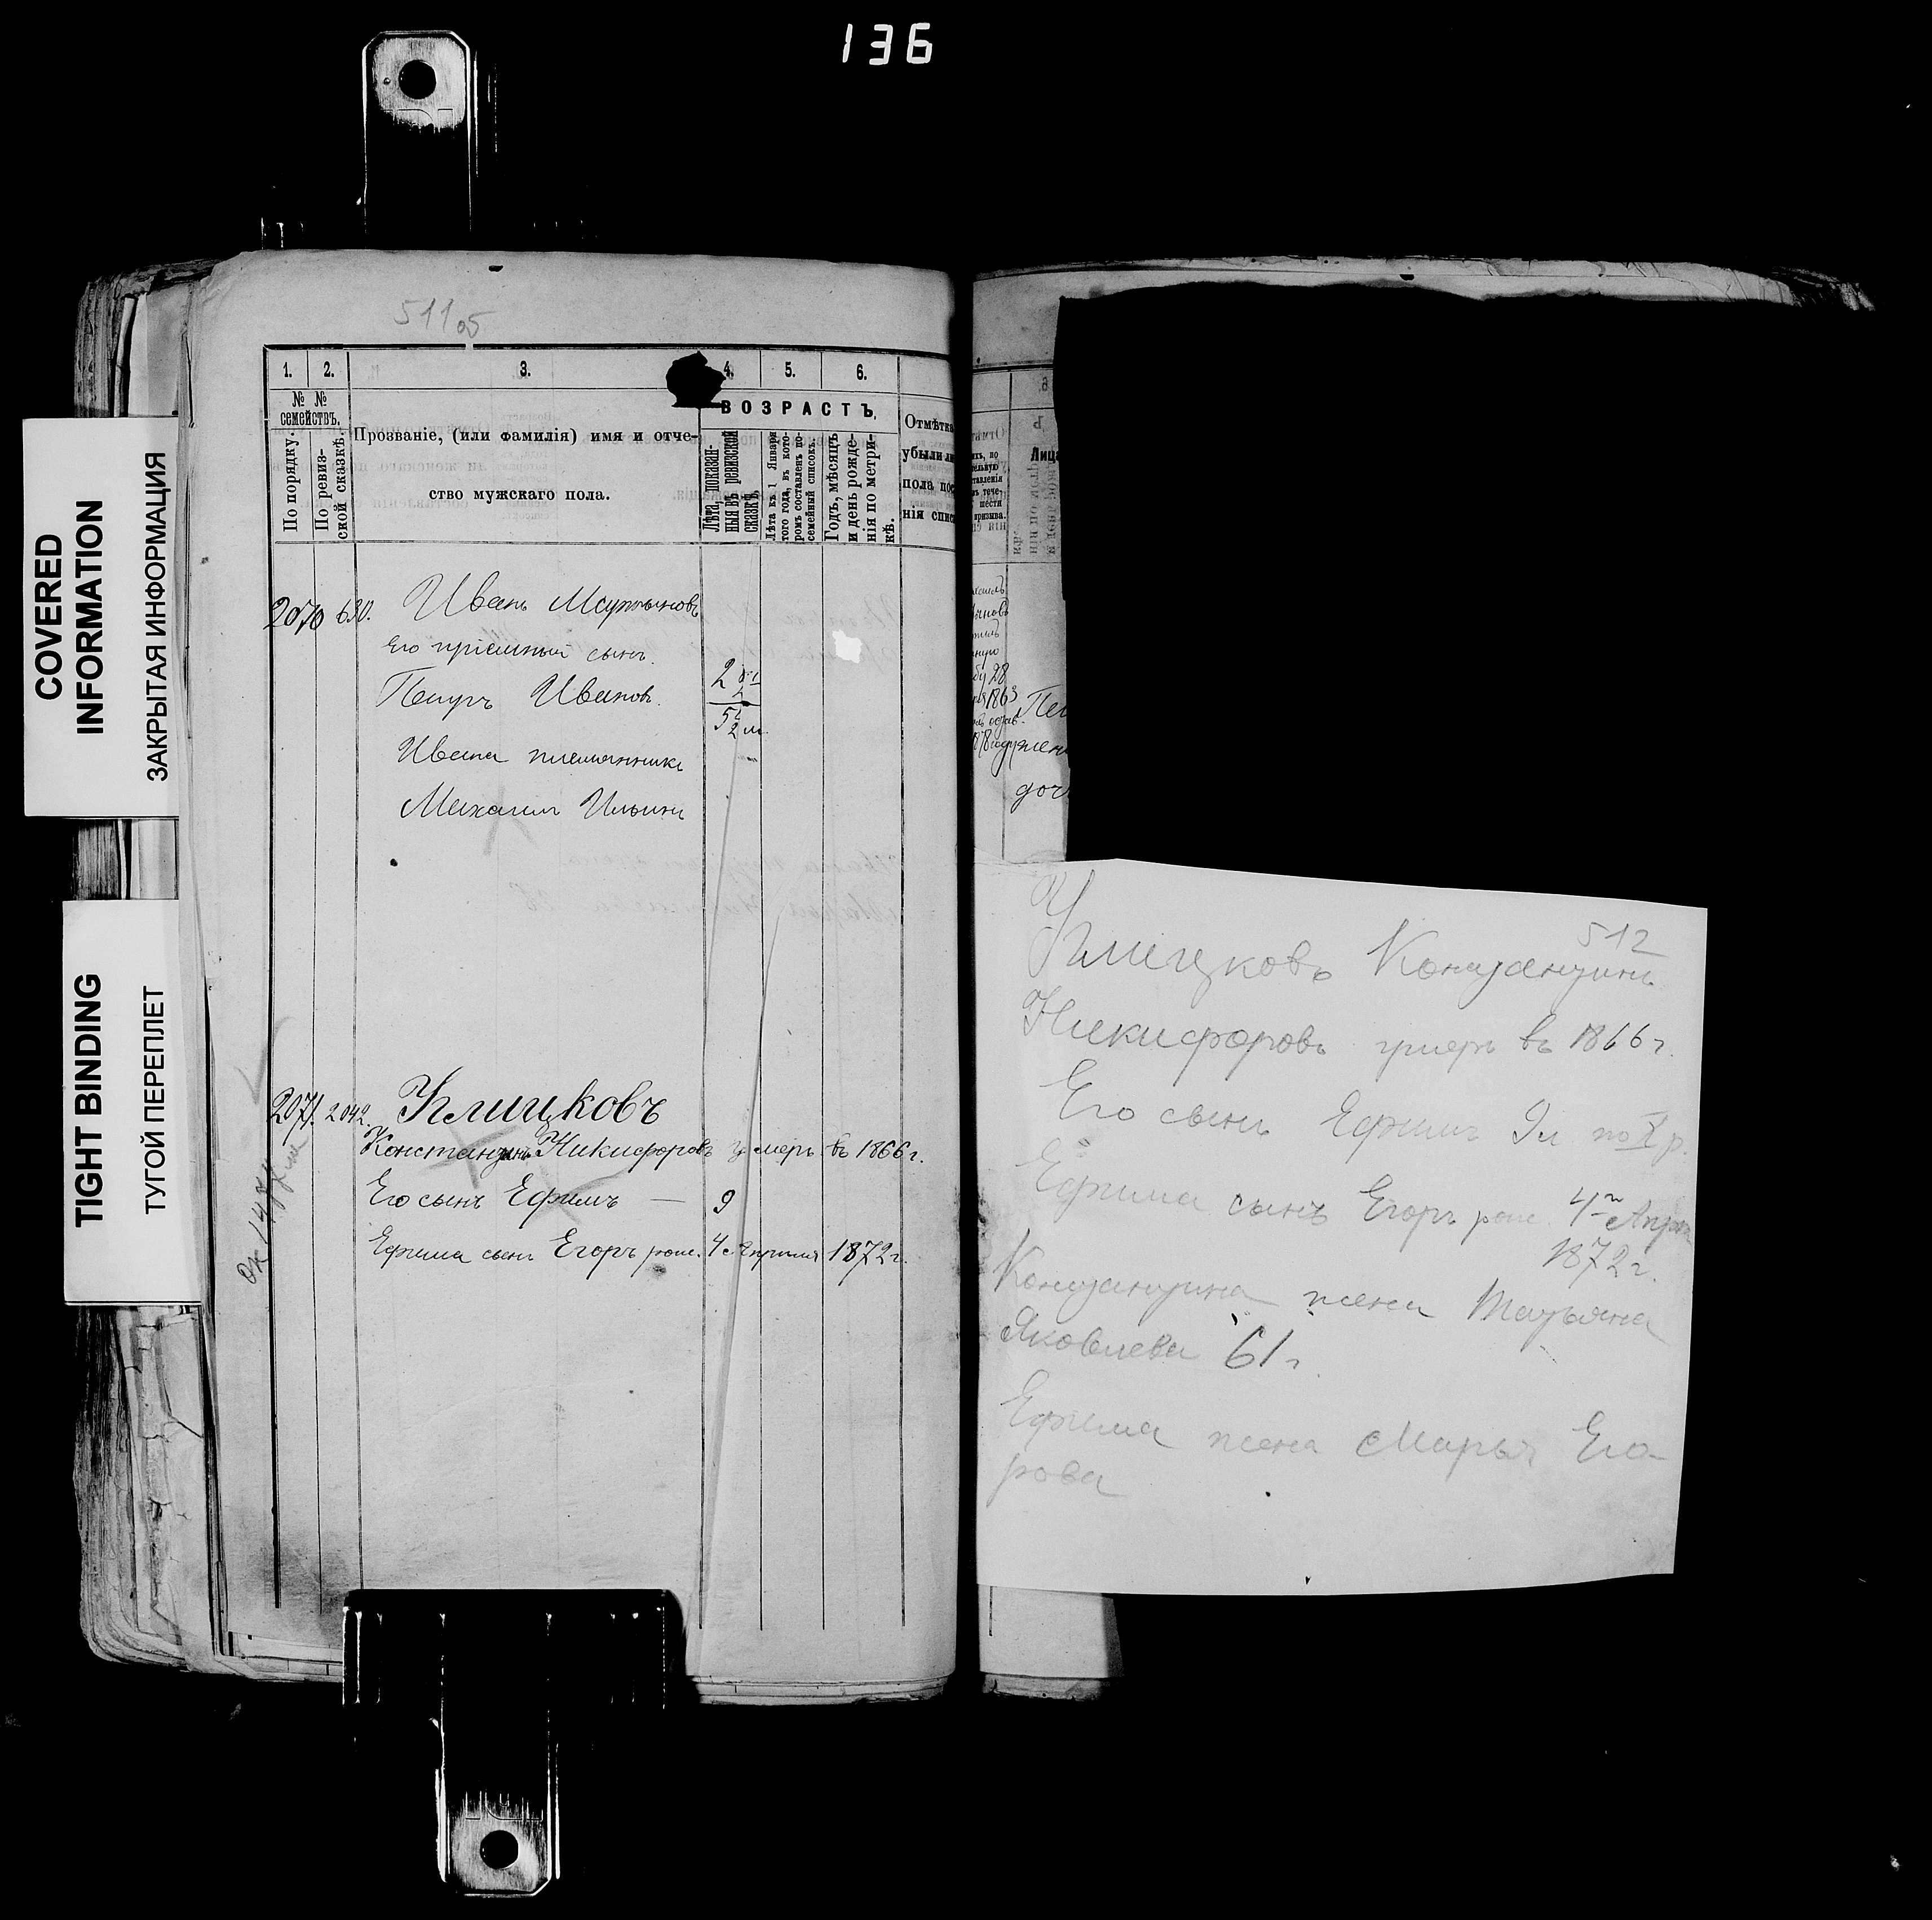 136
COVERED
INFORMATION
ЗАКРЫТАЯ ИНФОРМАЦИЯ
TIGHT BINDING
ТУГОЙ ПЕРЕПЛЕТ
511 об
1. 2. 3. 4. 5. 6.
№ № семействъ.
По порядку.
По ревизской сказкѣ.
Прозваніе, (или фамилія) имя и отче-
ство мужскаго пола.
ВОЗРАСТЪ.
Лѣта, показан-
ныя въ ревизской
сказкѣ
Лѣта къ 1 Января
того года, въ кото-
ромъ составленъ по-
семейный списокъ.
Годъ, мѣсяцъ
и день рожде-
нія по метри-
кѣ.
Отмѣтка
убыли ли
пола пос
нія спис
Лица
2070 630. Иванъ Мартыновъ
Его пріемный сынъ.
Петръ Ивановъ.
Ивана племянникъ
Михаилъ Ильинъ
2071. 2042. Углицковъ
Константинъ Никифоровъ умеръ въ 1866 г.
Его сынъ Ефимъ — 9
Ефима сынъ Егоръ рож. 4 Апрѣля 1872 г.
28
1863
Пет
жен
доч
512
Углицковъ Константинъ
Никифоровъ умеръ въ 1866 г.
Его сынъ Ефимъ 9 л по X р.
Ефима сынъ Егоръ рож. 4го Апрѣ
1872 г.
Константина жена Татьяна
Яковлева 61 г.
Ефима жена Марья Его-
рова